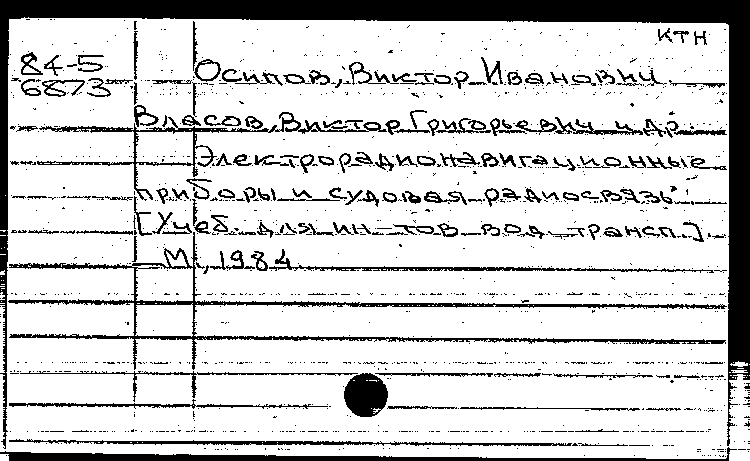 КТН
84-5
6873
Осипов, Виктор Иванович.
Власов, Виктор Григорьевич и др.
Электрорадионавигационные
приборы и судовая радиосвязь:
[Учеб. для ин-тов вод. трансп.].
—М., 1984